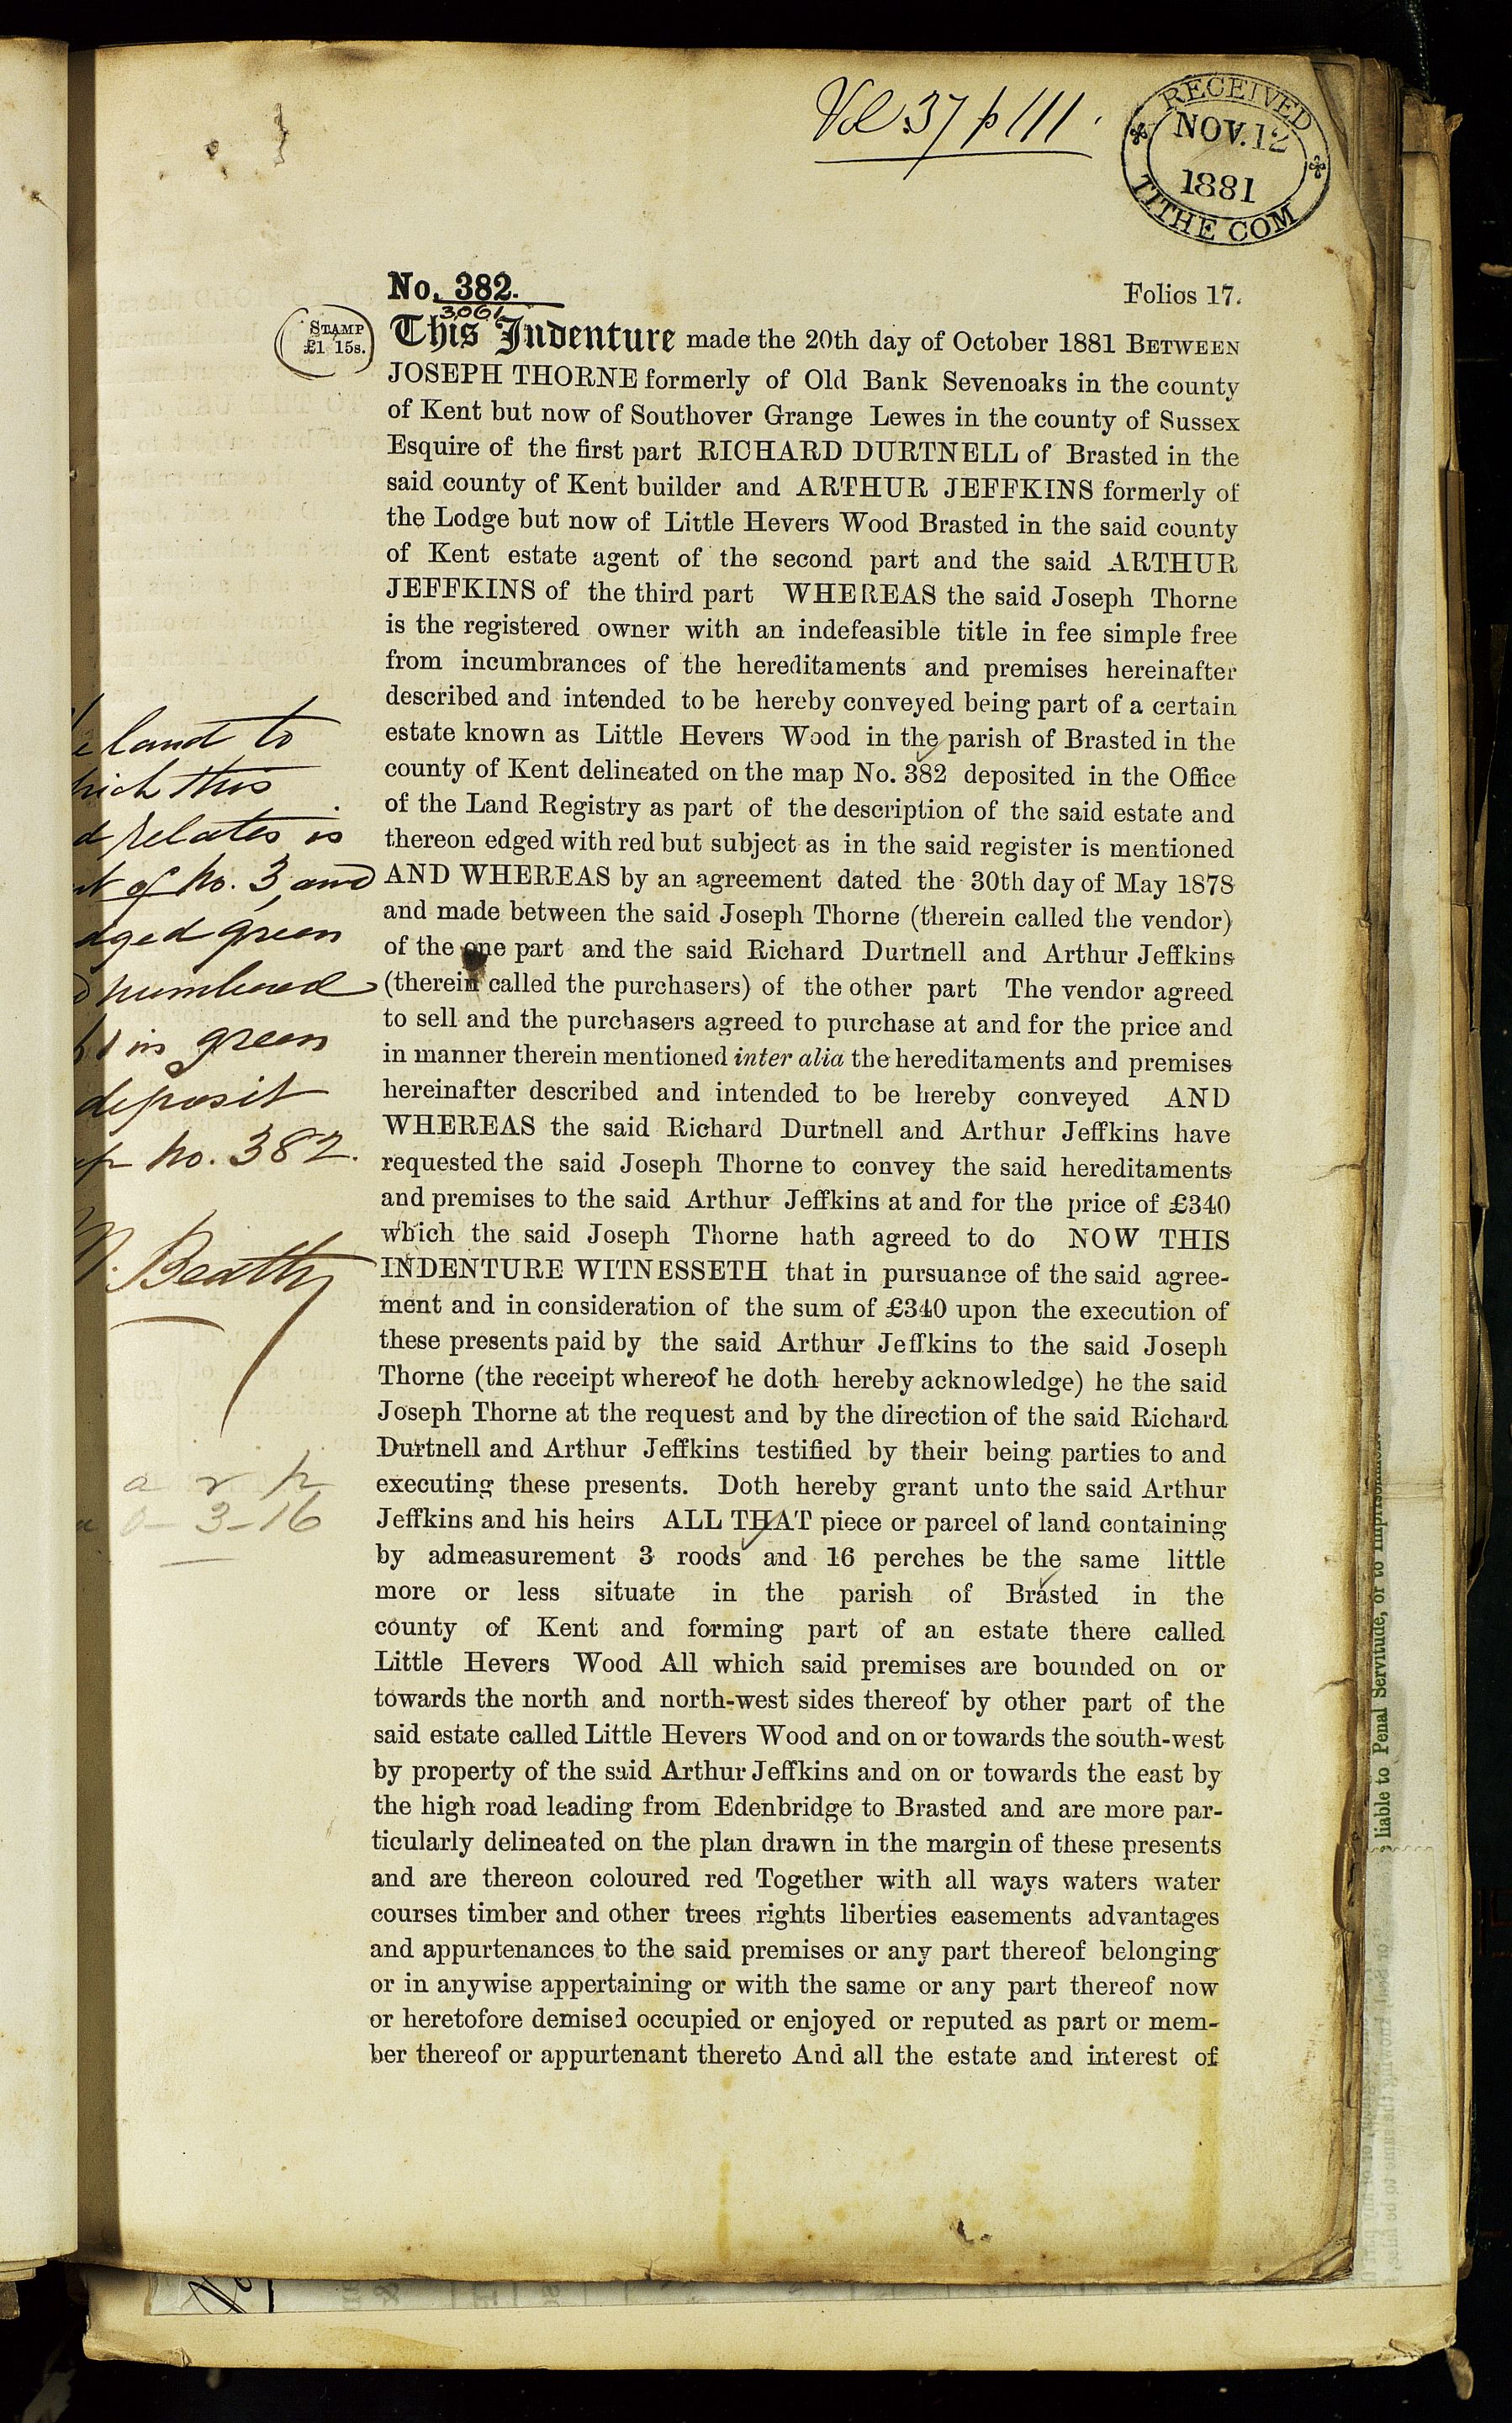 Vol 37 p 111.
RECEIVED
NOV. 12
1881
TITHE COM
No. 382.
Folios 17.
3,061
STAMP
£1 15s.
This Indenture made the 20th day of October 1881 BETWEEN
JOSEPH THORNE formerly of Old Bank Sevenoaks in the county
of Kent but now of Southover Grange Lewes in the county of Sussex
Esquire of the first part RICHARD DURTNELL of Brasted in the
said county of Kent builder and ARTHUR JEFFKINS formerly of
the Lodge but now of Little Hevers Wood Brasted in the said county
of Kent estate agent of the second part and the said ARTHUR
JEFFKINS of the third part WHEREAS the said Joseph Thorne
is the registered owner with an indefeasible title in fee simple free
from incumbrances of the hereditaments and premises hereinafter
described and intended to be hereby conveyed being part of a certain
estate known as Little Hevers Wood in the parish of Brasted in the
county of Kent delineated on the map No. 382 deposited in the Office
of the Land Registry as part of the description of the said estate and
thereon edged with red but subject as in the said register is mentioned
AND WHEREAS by an agreement dated the 30th day of May 1878
and made between the said Joseph Thorne (therein called the vendor)
of the one part and the said Richard Durtnell and Arthur Jeffkins
(therein called the purchasers) of the other part The vendor agreed
to sell and the purchasers agreed to purchase at and for the price and
in manner therein mentioned inter alia the hereditaments and premises
hereinafter described and intended to be hereby conveyed AND
WHEREAS the said Richard Durtnell and Arthur Jeffkins have
requested the said Joseph Thorne to convey the said hereditaments
and premises to the said Arthur Jeffkins at and for the price of £340
which the said Joseph Thorne hath agreed to do NOW THIS
INDENTURE WITNESSETH that in pursuance of the said agree-
ment and in consideration of the sum of £340 upon the execution of
these presents paid by the said Arthur Jeffkins to the said Joseph
Thorne (the receipt whereof he doth hereby acknowledge) he the said
Joseph Thorne at the request and by the direction of the said Richard
Durtnell and Arthur Jeffkins testified by their being parties to and
executing these presents. Doth hereby grant unto the said Arthur
Jeffkins and his heirs ALL THAT piece or parcel of land containing
by admeasurement 3 roods and 16 perches be the same little
more or less situate in the parish of Brasted in the
county of Kent and forming part of an estate there called
Little Hevers Wood All which said premises are bounded on or
towards the north and north-west sides thereof by other part of the
said estate called Little Hevers Wood and on or towards the south-west
by property of the said Arthur Jeffkins and on or towards the east by
the high road leading from Edenbridge to Brasted and are more par-
ticularly delineated on the plan drawn in the margin of these presents
and are thereon coloured red Together with all ways waters water
courses timber and other trees rights liberties easements advantages
and appurtenances to the said premises or any part thereof belonging
or in anywise appertaining or with the same or any part thereof now
or heretofore demised occupied or enjoyed or reputed as part or mem-
ber thereof or appurtenant thereto And all the estate and interest of
land to
this
relates is
of No. 3, and
green
numbered
in green
deposit
No. 382.
Beatty
a r p
0 - 3 - 16
liable to Penal Servitude, or to Imprisonment